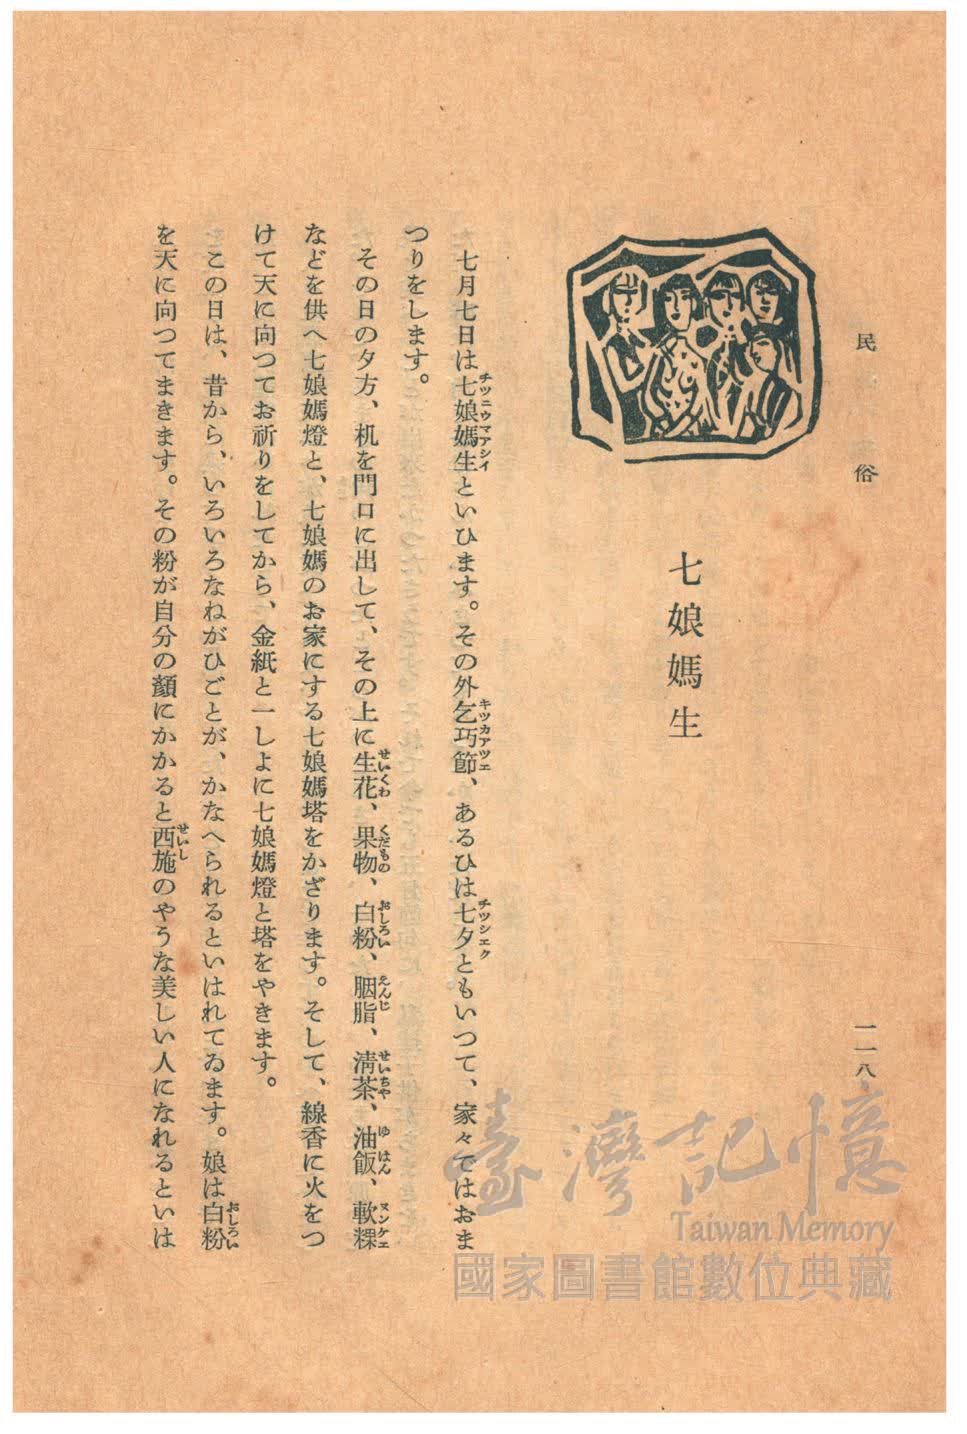 民俗
一一八
七娘媽生
七月七日は七娘媽生といひます。その外乞巧節、あるひは七夕ともいつて、家々ではおま
チツニウマアシイ
キツカアツエ
チツシエク
つりをします。
その日の夕方、机を門口に出して、その上に生花、果物、白粉、胭脂、淸茶、油飯、軟粿
せいくわ
くだもの
おしろい
えんじ
せいちや
ゆはん
ヌンケエ
などを供へ七娘媽燈と、七娘媽のお家にする七娘媽塔をかざります。そして、線香に火をつ
けて天に向つてお祈りをしてから、金紙と一しよに七娘媽燈と塔をやきます。
この日は、昔から、いろいろなねがひごとが、かなへられるといはれてゐます。娘は白粉
おしろい
を天に向つてまきます。その粉が自分の顏にかかると西施のやうな美しい人になれるといは
せいし
臺灣記憶
Taiwan Memory
國家圖書館數位典藏